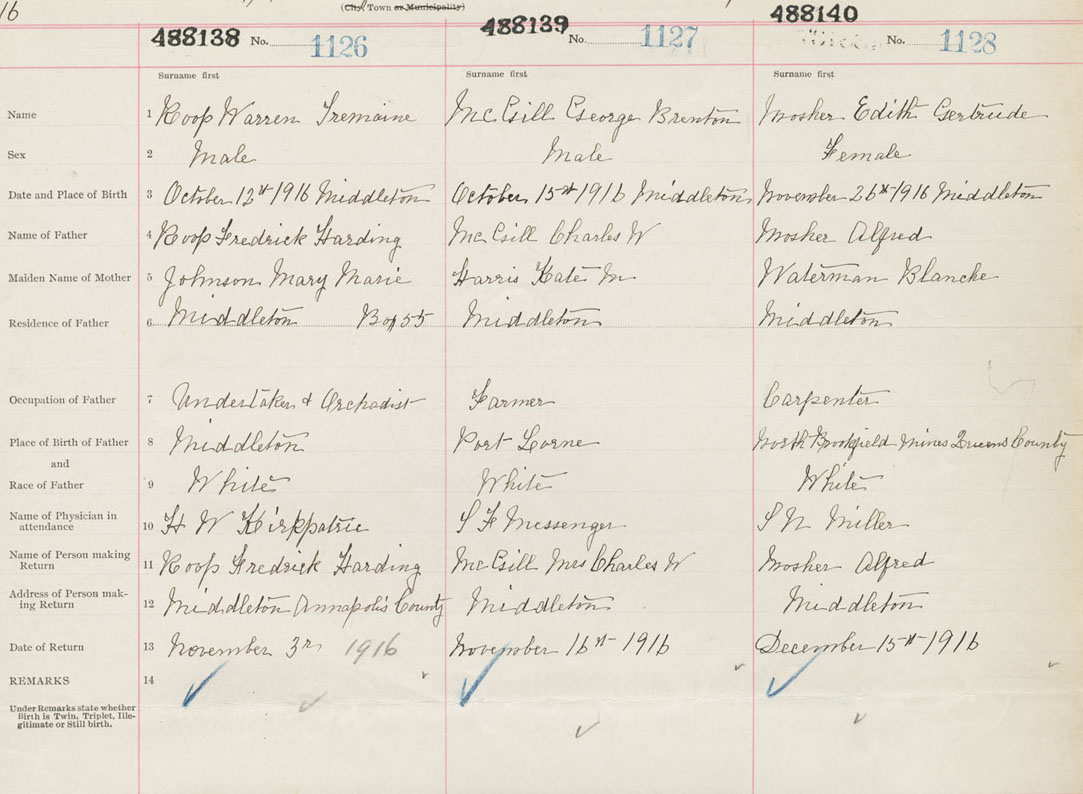 16
(City, Town or Municipality)
488138 No. 1126 488139 No. 1127 488140 No. 1128
Surname first Surname first Surname first
Name 1 Roop Warren Tremaine McGill George Brenton Mosher Edith Gertrude
Sex 2 Male Male Female
Date and Place of Birth 3 October 12th 1916 Middleton October 15th 1916 Middleton November 26th 1916 Middleton
Name of Father 4 Roop Fredrick Harding McGill Charles W Mosher Alfred
Maiden Name of Mother 5 Johnson Mary Marie Harris Kate M Waterman Blanche
Residence of Father 6 Middleton Box 55 Middleton Middleton
Occupation of Father 7 Undertaker & Orchadist Farmer Carpenter
Place of Birth of Father 8 Middleton Port Lorne North Brookfield Mines Queens County
and
Race of Father 9 White White White
Name of Physician in
attendance 10 H W Kirkpatric S F Messenger S N Miller
Name of Person making
Return 11 Roop Fredrick Harding McGill Mrs Charles W Mosher Alfred
Address of Person mak-
ing Return 12 Middleton Annapolis County Middleton Middleton
Date of Return 13 November 3rd 1916 November 16th 1916 December 15th 1916
REMARKS 14
Under Remarks state whether
Birth is Twin, Triplet, Ille-
gitimate or Still birth.